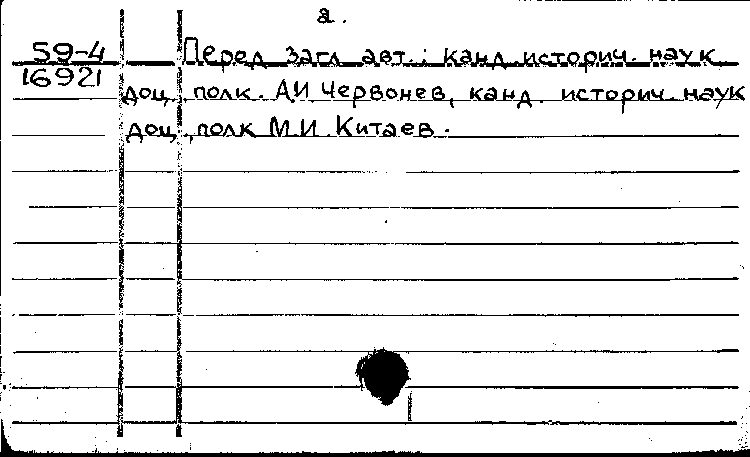 а.
59-4 Перед загл авт.: канд историч. наук
16921
доц., полк. А.И Червонев, канд. историч. наук
доц., полк М.И. Китаев.